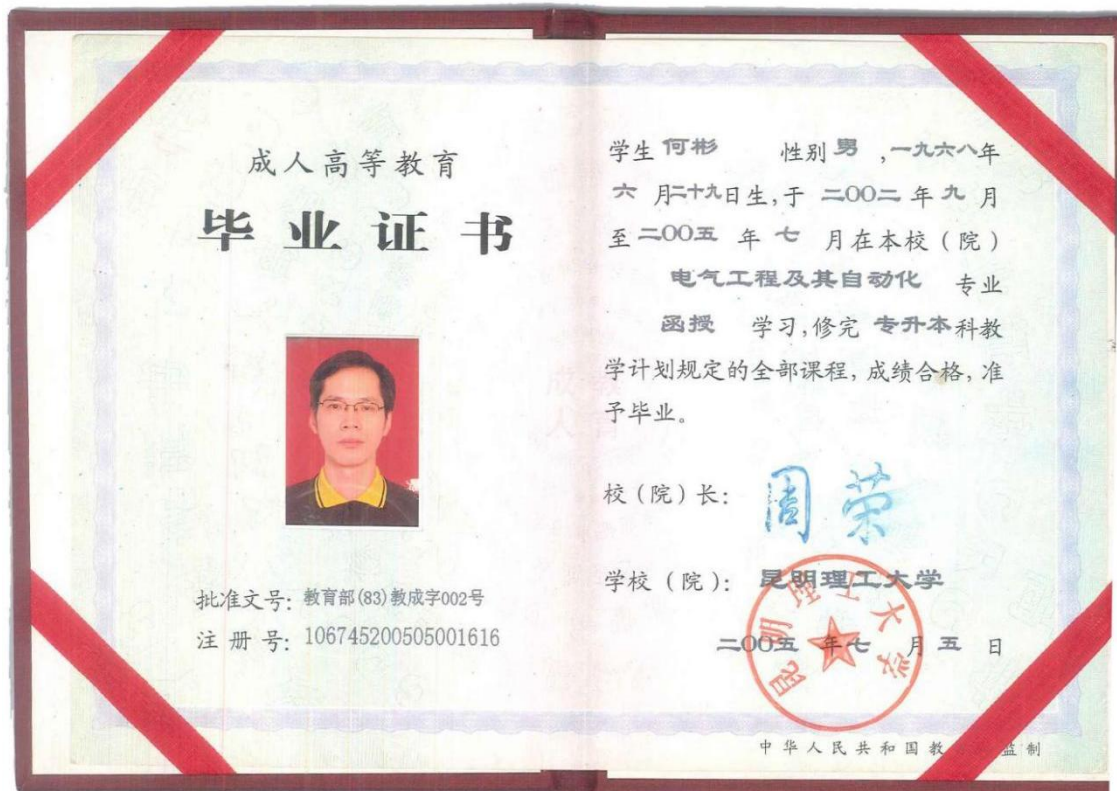 成人高等教育
毕业证书
批准文号：教育部(83)教成字002号
注册号：106745200505001616
学生 何彬 性别 男，一九六八年
六月二十九日生，于 二〇〇二年九月
至二〇〇五年七月在本校（院）
电气工程及其自动化 专业
函授 学习，修完 专升本科教
学计划规定的全部课程，成绩合格，准
予毕业。
校（院）长：周荣
学校（院）：昆明理工大学
昆明理工大学
二〇〇五年七月五日
中华人民共和国教 监制